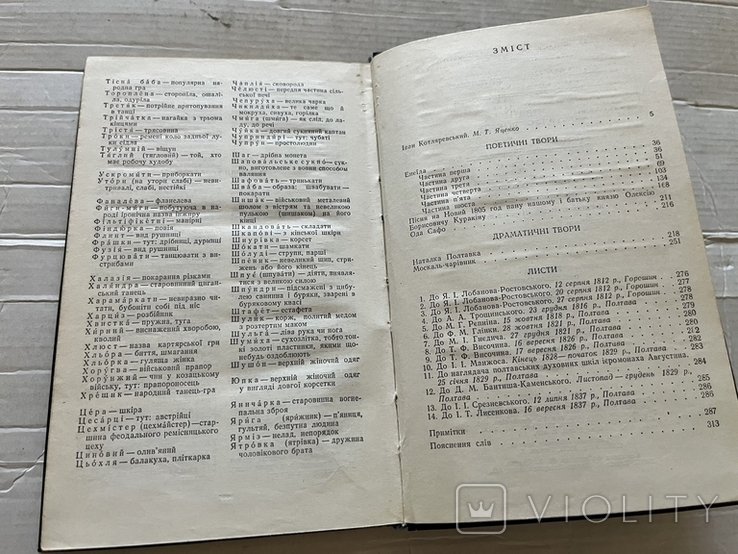 Тісна́ ба́ба — популярна на-
родна гра
Торопле́на — сторопіла, ошалі-
ла, одуріла
Трета́к — потрійне притопування
в танці
Трійча́тка — нагайка з трьома
кінцями
Тріста́ — трясовина
Тро́ки — ремені коло задньої луки
сідла
Тулу́мший — віщун
Та́глий (тягловий) — той, хто
має робочу худобу
Ускромити — приборкати
Уто́ри (на утори слабі) — невит-
тривалі, слабі, нестійкі
Фанале́ва — фланелева
Фа́йгмети — побутуюча в на-
роді іронічна назва інжиру
Фільтіфіке́тні — манірні
Фіндю́рка — повія
Флинт — вид рушниці
Фра́шки — тут: дрібниці, дурниці
Фузі́я — вид рушниці
Фурцюва́ти — танцювати з ви-
стрибами
Хала́зія — покарання різками
Халя́ндра — старовинний циганський
танець
Харама́ркати — невиразно чи-
тати, бубоніти собі під ніс
Харци́з — розбійник
Хви́стка — пружа, туга
Хи́рний — виснажений хворобою,
кволий
Хлюст — назва картярської гри
Хльо́ра — биття, шмагання
Хльо́рка — гуляща жінка
Хору́гва — військовий прапор
Хору́нжий — чин у козацькому
війську, тут: прапороносець
Хре́щик — народний танець-гра
Це́ра — шкіра
Цеса́рці — тут: австрійці
Цехмі́стер (цехма́йстер) — стар-
шина феодального ремісницького
цеху
Цино́вий — олив'яний
Цьо́хля — балакуха, пліткарка
Чаплія́ — сковорода
Че́люсті — передня частина сіль-
ської печі
Чепуру́ха — велика чарка
Чикилди́ха — те саме що й
мокруха, сивуха, горілка
Чмига (шмига) — як слід, до
ладу, до речі
Чу́йка — довгий сукняний каптан
Чупринда́рі — тут: чубаті
Чупру́н — простолюдин
Шаг — дрібна монета
Шапова́льське сукно́ — сук-
но, виготовлене з вовни способом
валяння
Шафова́ть — тринькати
Шва́ба — образа: швабувати —
покарати
Шиша́к — військовий металевий
шолом з вістрям та невеликою
пулькою (шишаком) на його
кінці
Шкандова́ть — складати
Шкапові́ — з кінської шкіри
Шнурі́вка — корсет
Шпакова́ть — шмагати
Шо́луді — струпи, парші
Шпе́ник — невеликий шип, стри-
жень або його кінець
Шпує́ (шпува́ти) — діяти, вияв-
лятися з великою силою
Шпу́ндри — підсмажені з цибу-
лею свинина і буряки, зварені з
буряковому квасі
Штафе́т — естафета
Шулик — корж, политий медом
з розтертим маком
Шульга́ — ліва рука чи нога
Шуми́ха — сухозлітка, тобто тон-
кі золоті пластинки, якими що-
небудь оздоблюють
Шушо́н — верхній жіночий одяг
Юпка — верхній жіночий одяг
у вигляді довгої корсетки
Яничарка — старовинна вогне-
пальна зброя
Яри́га (ярижник) — п'яниця,
гультяй, безпутна людина
Ярміз — нелад, непорядок
Ятро́вка (ятрівка) — дружина
чоловікового брата
ЗМІСТ
Іван Котляревський. М. Т. Яценко 5
ПОЕТИЧНІ ТВОРИ
Енеїда 36
Частина перша 36
Частина друга 51
Частина третя 69
Частина четверта 104
Частина п'ята 134
Частина шоста 168
Пісня на Новий 1805 год пану нашому і батьку князю Олексію
Борисовичу Куракіну 211
Ода Сафо 216
ДРАМАТИЧНІ ТВОРИ
Наталка Полтавка 218
Москаль-чарівник 251
ЛИСТИ
1. До Я. І. Лобанова-Ростовського. 12 серпня 1812 р., Горошин 276
2. До Я. І. Лобанова-Ростовського. 20 серпня 1812 р., Горошин 277
3. До Я. І. Лобанова-Ростовського. 27 серпня 1812 р., Горошин 278
4. До А. А. Трощинського. 23 грудня 1816 р., Полтава 279
5. До М. Г. Репніна. 15 жовтня 1818 р., Полтава 280
6. До Ф. М. Глінки. 28 жовтня 1821 р., Полтава
7. До М. І. Гнедича. 27 грудня 1821 р., Полтава
8. До Т. Ф. Височина. 17 вересня 1826 р., Полтава
9. До Т. Ф. Височина. 16 вересня 1826 р., Полтава
10. До І. І. Манжоса. Кінець 1828 — початок 1829 р., Полтава
11. До наглядача полтавських духовних шкіл ієромонаха Августина.
25 січня 1829 р., Полтава 284
12. До Д. М. Бантиша-Каменського. Листопад — грудень 1829 р.,
Полтава 285
13. До І. І. Срезневського. 12 липня 1837 р., Полтава 285
14. До І. Т. Лисенкова. 16 вересня 1837 р., Полтава 286
Примітки 287
Пояснення слів 313
VIOLITY